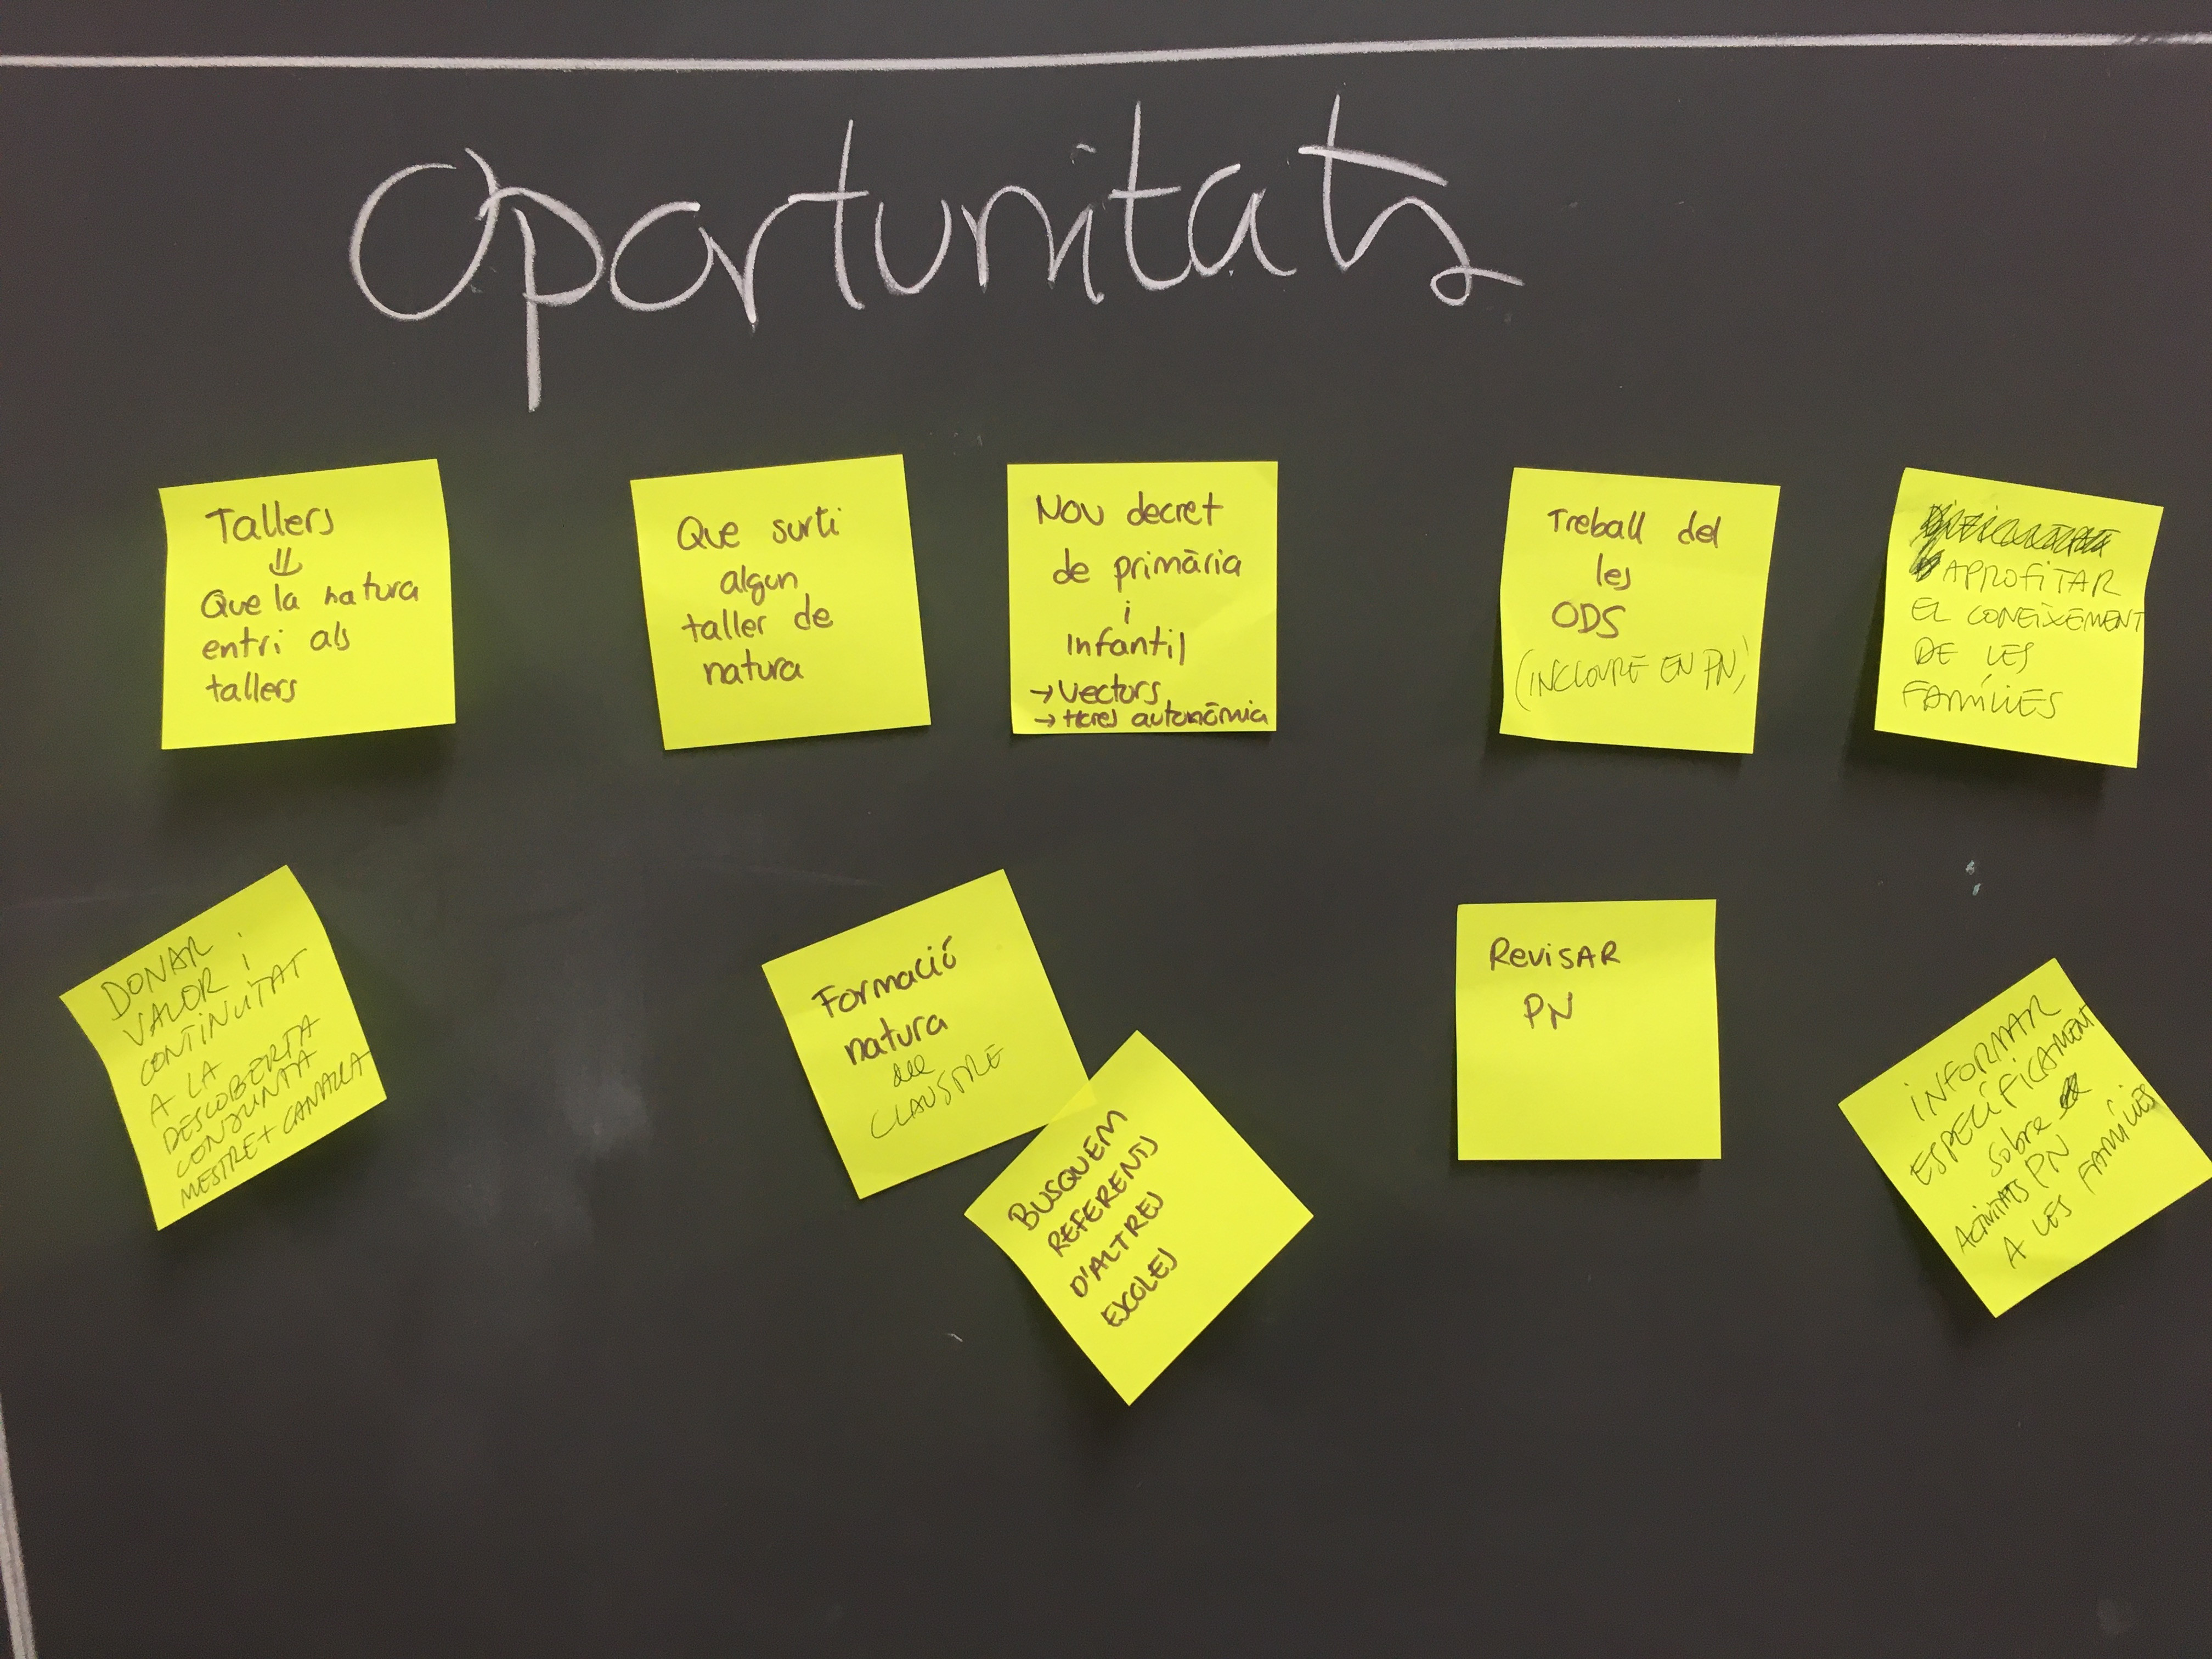 Oportunitats
Tallers
⇓
Que la natura
entri als
tallers
Que surti
algun
taller de
natura
Nou decret
de primària
i
Infantil
→ Vectors
→ Hores autonòmia
Treball del
les
ODS
(INCLOURE EN PN)
APROFITAR
EL CONEIXEMENT
DE LES
FAMÍLIES
DONAR
VALOR i
CONTINUITAT
A LA
DESCOBERTA
CONJUNTA
MESTRE + CANALLA
Formació
natura
del
CLAUSTRE
BUSQUEM
REFERENTS
D'ALTRES
ESCOLES
REVISAR
PN
INFORMAR
ESPECÍFICAMENT
sobre
ACTIVITATS PN
A LES FAMÍLIES